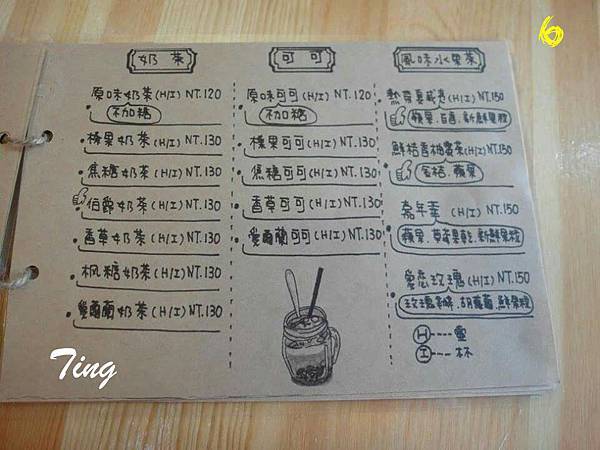 6
奶茶
原味奶茶(H/I) NT.120
不加糖
榛果奶茶(H/I) NT.130
焦糖奶茶(H/I) NT.130
伯爵奶茶(H/I) NT.130
香草奶茶(H/I) NT.130
枫糖奶茶(H/I) NT.130
愛爾蘭奶茶(H/I) NT.130
可可
原味可可(H/I) NT.120
不加糖
榛果可可(H/I) NT.130
焦糖可可(H/I) NT.130
香草可可(H/I) NT.130
愛爾蘭可可(H/I) NT.130
風味水果茶
熱帶夏威夷(H/I) NT.150
蘋果.百香.新鮮果粒
鮮桔香柚蜜茶(H/I) NT.150
金桔.蘋果
嘉年華 (H/I) NT.150
蘋果.草莓果乾.新鮮果粒
愛戀玫瑰(H/I) NT.150
玫瑰花瓣.胡蘿蔔.鮮果粒
H----壺
I---杯
Ting